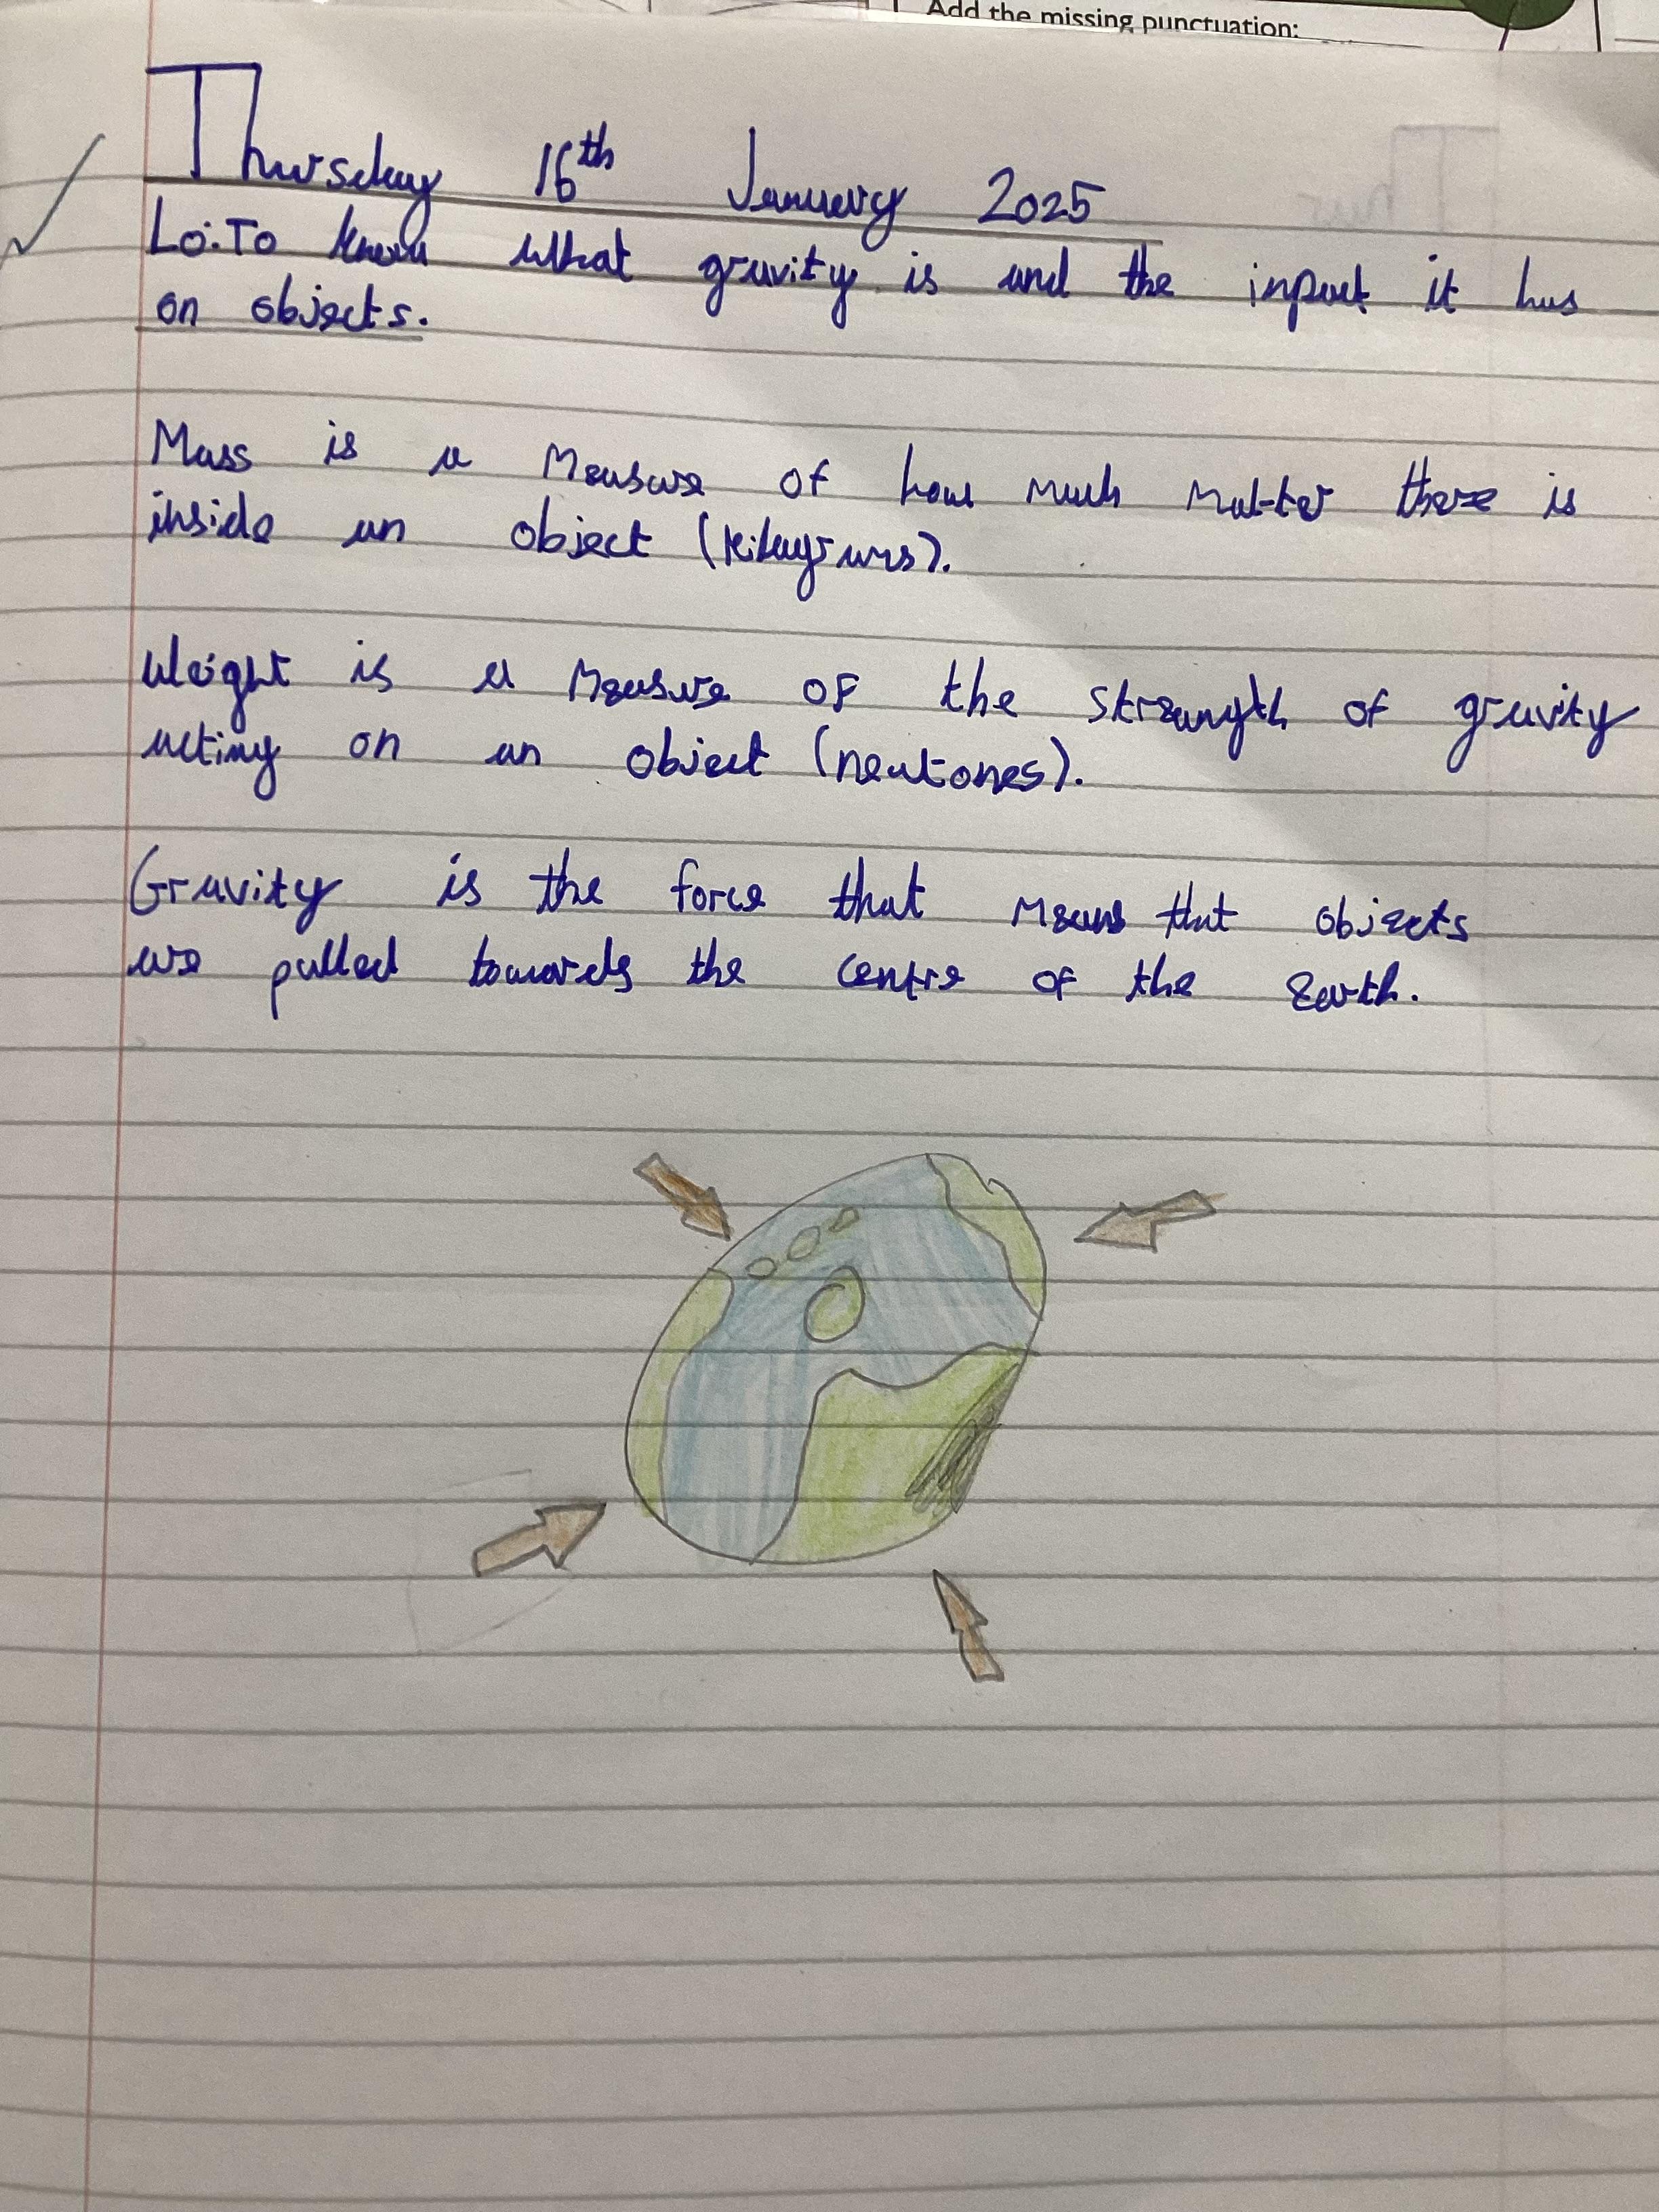 Add the missing punctuation:
Thursday 16th January 2025
Lo: To know what gravity is and the inpact it has
on objects.
Mass is a measure of how much matter there is
inside an object (kilagrams).
Weight is a measure of the streangth of gravity
acting on an object (newtones).
Gravity is the force that means that objects
are pulled towards the centre of the Earth.